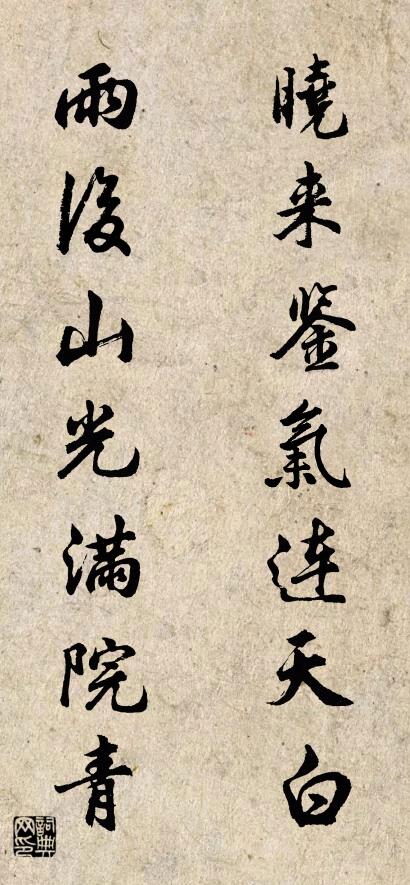 曉来鉴氣連天白
雨後山光滿院青
詞典网印